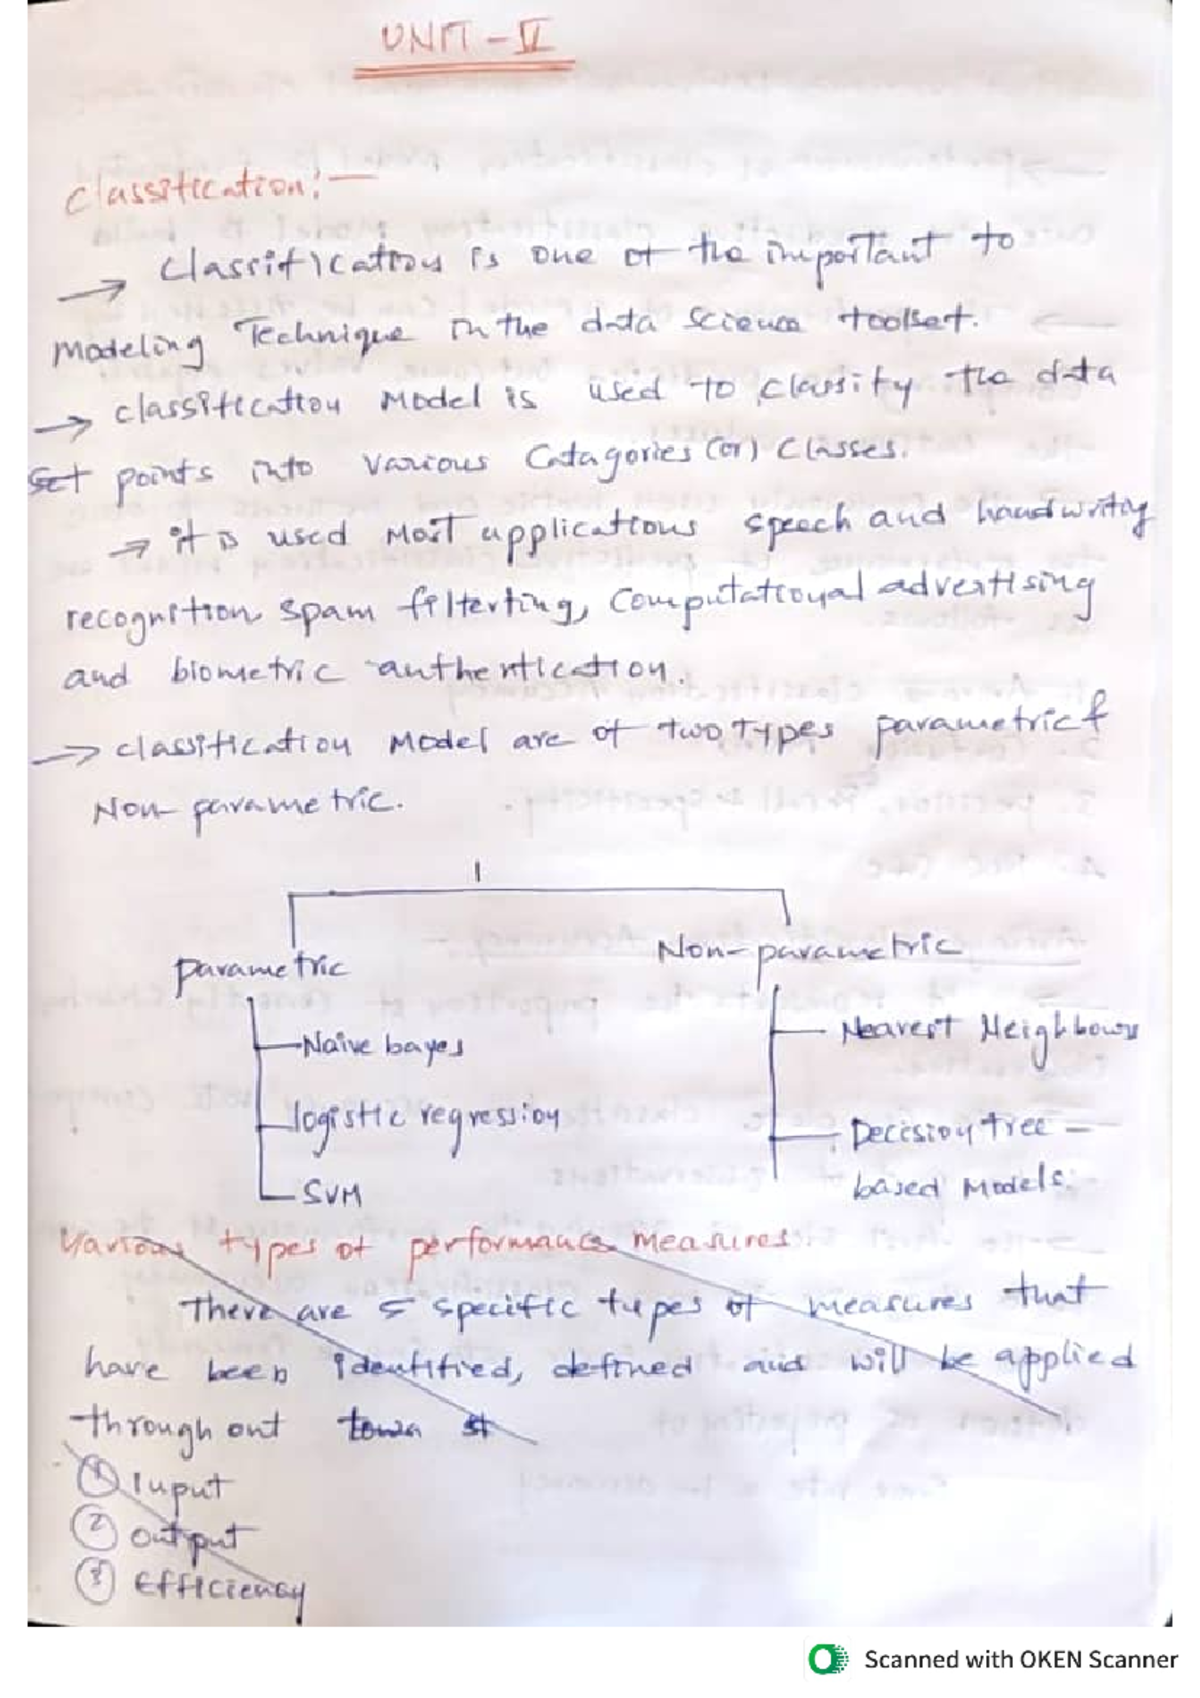 UNIT - V
Classification:-
→ Classification is one of the important to
modeling Technique in the data science toolset.
→ classification Model is used to classify the data
set points into various Catagories (or) Classes.
→ it is used most applications speech and handwriting
recognition spam filterting, Computational advertising
and biometric authentication.
→ classification Model are of two Types parametric &
Non-parametric.
parametric
Non-parametric
Naive bayes
Nearest Neighbours
logistic regression
Decision tree -
SVM
based Models.
Various types of performance measures
There are 5 specific types of measures that
have been identified, defined and will be applied
through out town st
① Input
② output
③ Efficiency
Scanned with OKEN Scanner